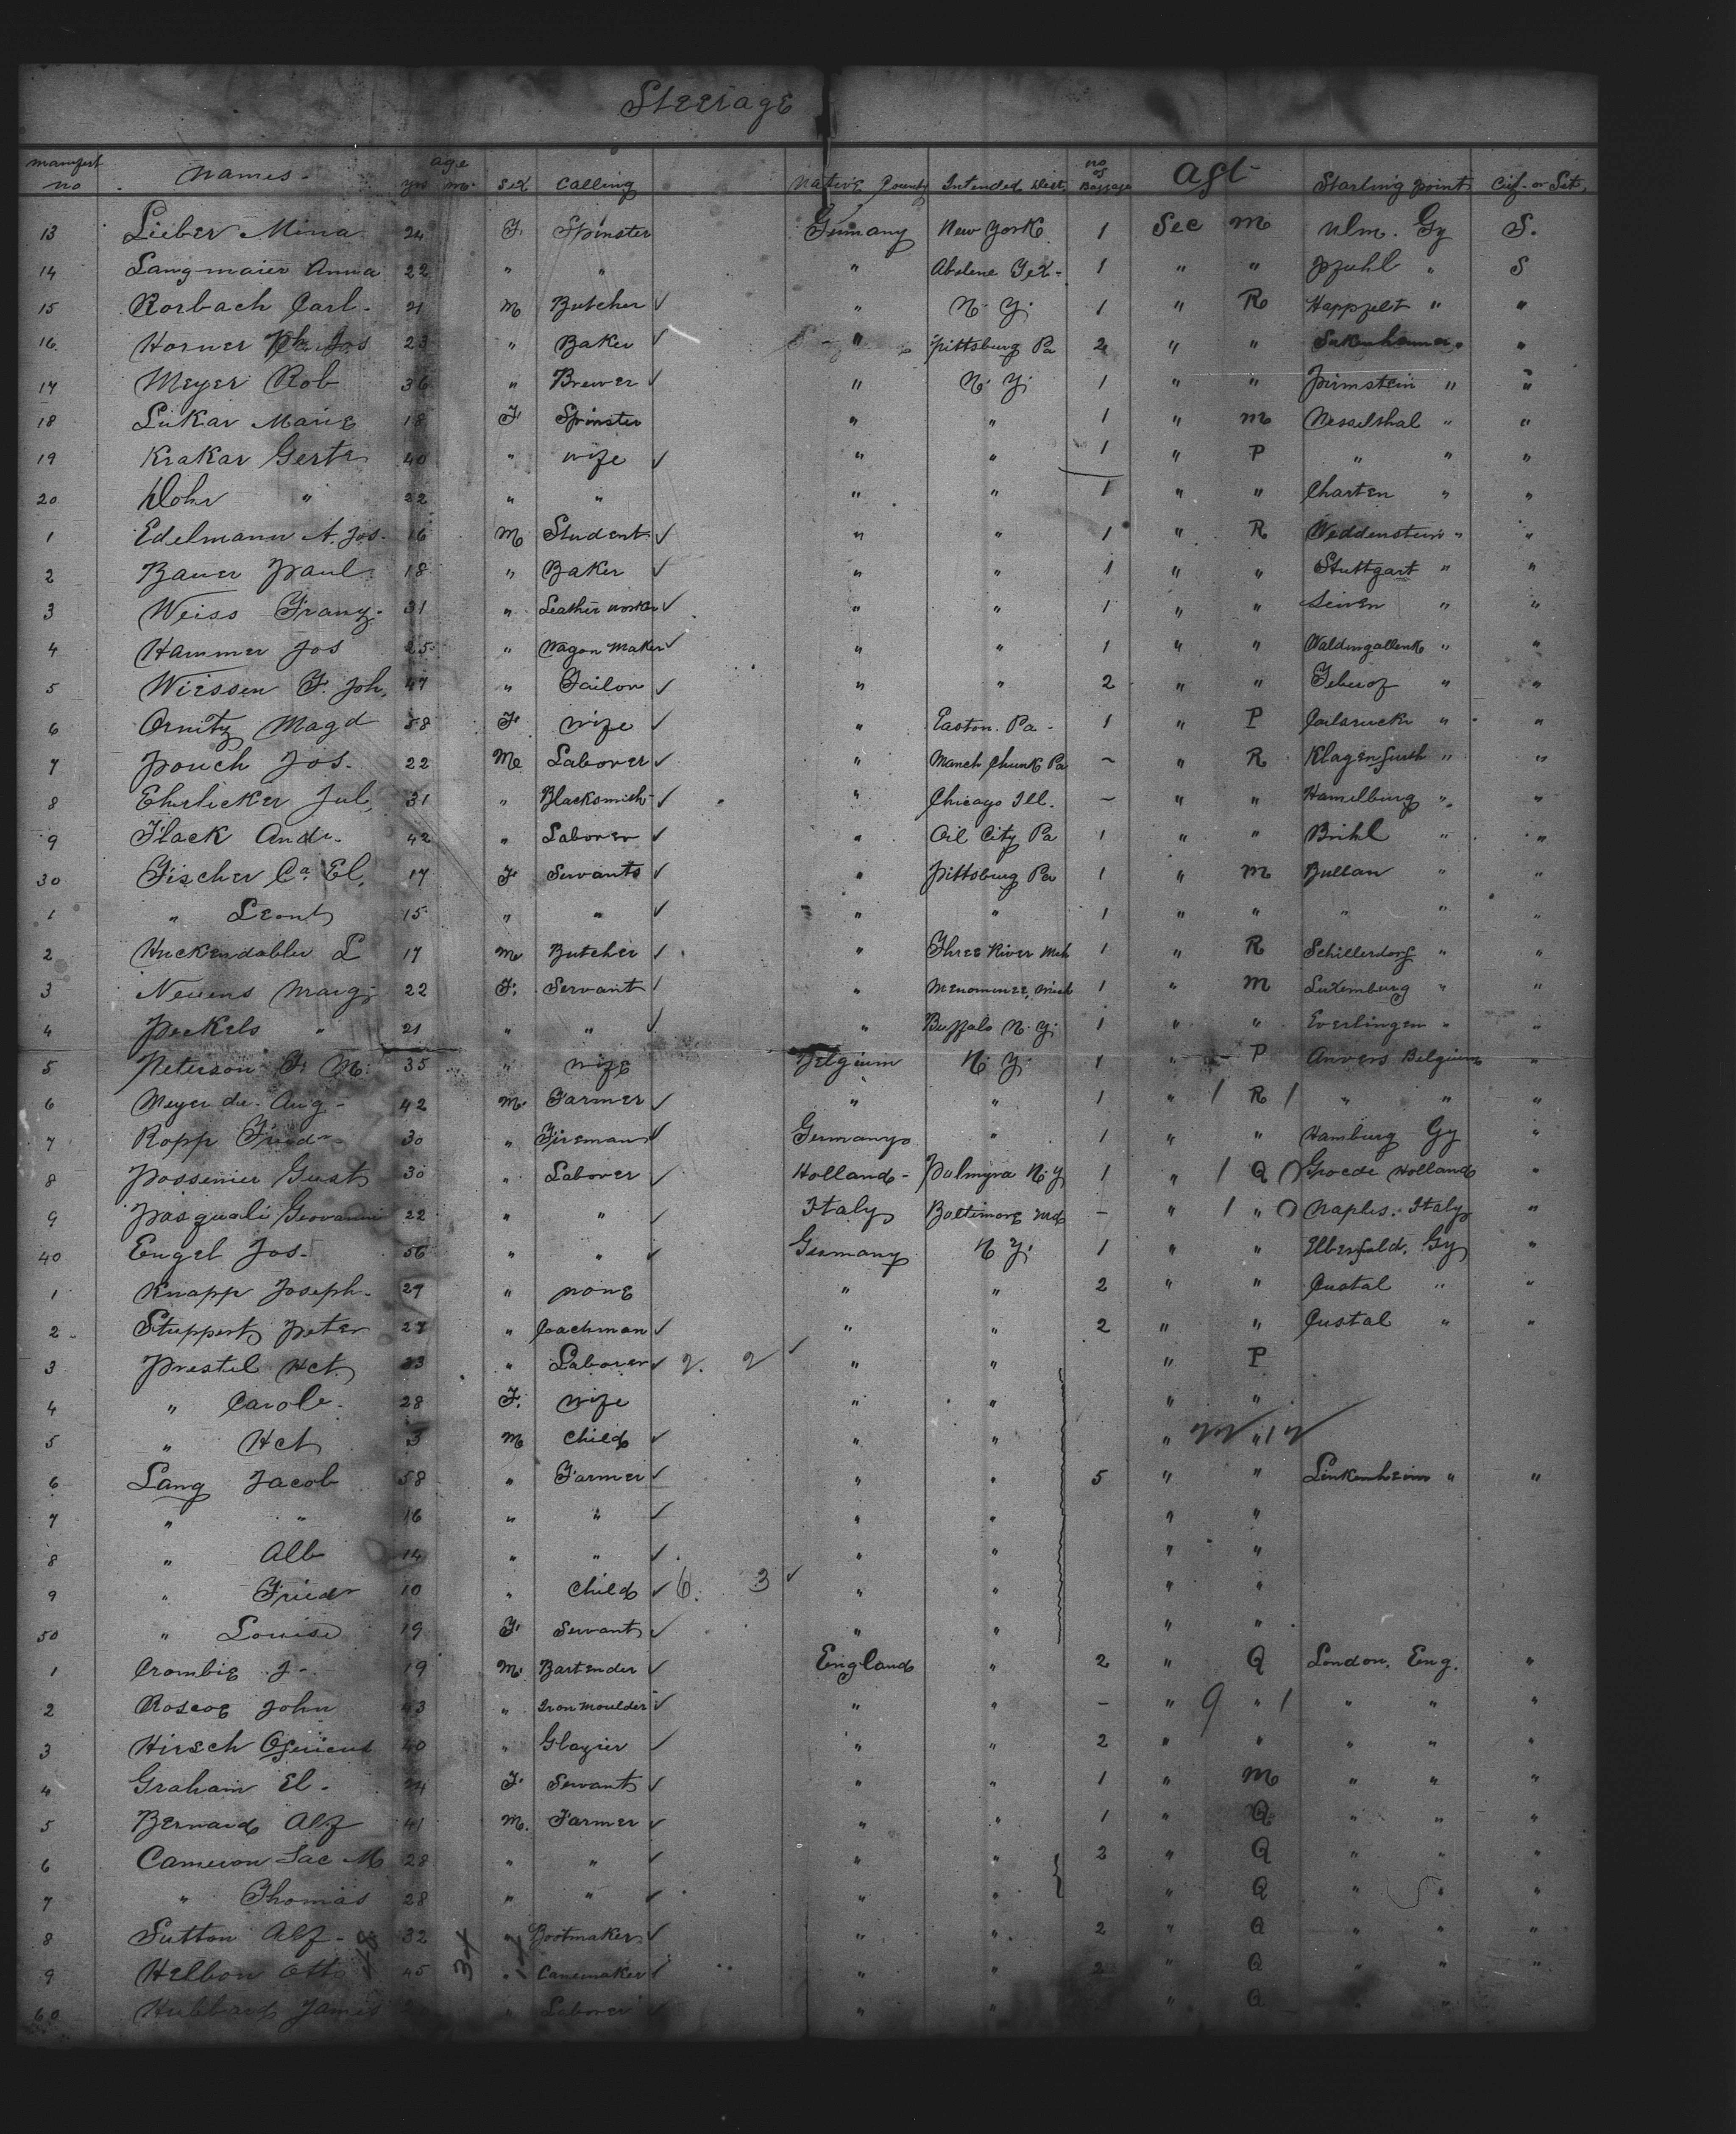 Steerage
manifest no names age yrs m. sex Calling native County Intended Dest. no of Baggage agt Starting point Cif. or Sit.
13 Lieber Mina 24 F. Spinster Germany New York 1 Sec M Ulm. Gy S.
14 Langmaier Anna 22 " " " Abilene Tex- 1 " " Pfuhl " S
15 Rorbach Carl. 21 M Butcher " N. Y. 1 " R "  "
16 Horner Jos 23 " Baker " Pittsburg Pa 2 " " "
17 Meyer Rob 36 " Brewer " N. Y. 1 " " Pirmstein " "
18 Lukar Marie 18 F Spinster " " 1 " M Nesselthal " "
19 Krakar Gertr 40 " wife " " 1 " P " " "
20 Dohr " 22 " " " " 1 " " Charten " "
1 Edelmann A. Jos. 16 M Student " " 1 " R Weddenstein " "
2 Bauer Paul. 18 " Baker " " 1 " " Stuttgart " "
3 Weiss Franz. 31 " Leather worker " " 1 " " Leiven " "
4 Hammer Jos 25 " Wagon Maker " " 1 " " " "
5 Wiessen F. Joh. 47 " Tailor " " 2 " " " "
6 Ornitz Magd 58 F. wife " Easton. Pa - 1 " P " "
7 Pouch Jos. 22 M Laborer " Manch Chunk Pa ~ " R Klagenfurth " "
8 Ehrlicker Jul, 31 " Blacksmith " Chicago Ill. ~ " " Hamelburg " "
9 Flack Andr. 42 " Laborer " Oil City Pa 1 " " Brihl " "
30 Fischer Ca. El. 17 F Servants " Pittsburg Pa 1 " M Bullan " "
1 " Leont 15 " " " " 1 " " " " "
2 Huckendabler L 17 M Butcher " Three River Mch 1 " R Schillerdorf " "
3 Neuens Marg. 22 F. Servant " Menominee, Mich 1 " M Luxemburg " "
4 Peckels " 21 " " " Buffalo N. Y. 1 " " Everlingen " "
5 Peterson F. M. 35 " wife Belgium N. Y. 1 " P Anvers Belgium "
6 Meyer de. Aug - 42 M. Farmer " " 1 " / R / " " "
7 Ropp Friedr. 30 " Fireman Germany " 1 " " Hamburg Gy "
8 Possenier Gust 30 " Laborer Holland - Palmyra N. Y. 1 " / Q Groede Holland "
9 Pasquali Giovanni 22 " " Italy Baltimore Md - " / " Naples. Italy "
40 Engel Jos. 56 " " Germany N Y. 1 " " Elberfeld. Gy "
1 Knapp Joseph. 29 " none " " 2 " " Custal " "
2 Stuppert Peter 27 " Coachman " " 2 " " Custal " "
3 Prestel Hct. 33 " Laborer 2. 2 " " " P
4 " Carole. 28 F. wife " " " "
5 " Hct 3 M Child " " " "
6 Lang Jacob 58 " Farmer " " 5 " " Linkenheim " "
7 " " 16 " " " " " "
8 " Alb 14 " " " " " "
9 " Friedr 10 " Child 6. 3 " " " "
50 " Louise 19 F. Servant " " " "
1 Crombie J. - 19 M. Bartender England " 2 " Q London. Eng. "
2 Roscoe John 43 " Iron Moulder " " - " 9 " 1 " " "
3 Hirsch 40 " Glazier " " 2 " " " " "
4 Graham El. 24 F. Servant " " 1 " M " " "
5 Bernard Alf 41 M. Farmer " " 1 " Q " " "
6 Cameron M 28 " " " " 2 " Q " " "
7 " Thomas 28 " " " " " Q " " "
8 Sutton Alf - 32 " Bootmaker " " 2 " Q " " "
9 Helbon Otto 45 " Canemaker " " 2 " Q " " "
60 Hubbard James " Laborer " " " Q " "
34